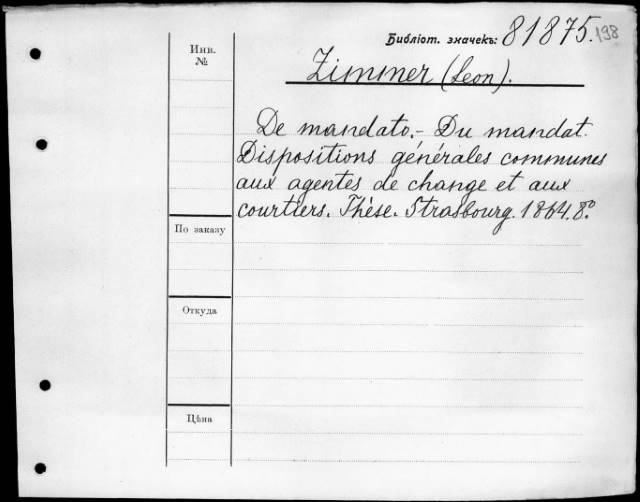 Библіот. значекъ: 81875. 198
Инв.
№
Zimmer (Leon).
De mandato. - Du mandat.
Dispositions générales communes
aux agentes de change et aux
courtiers. Thèse. Strasbourg. 1864. 8º
По заказу
Откуда
Цѣна